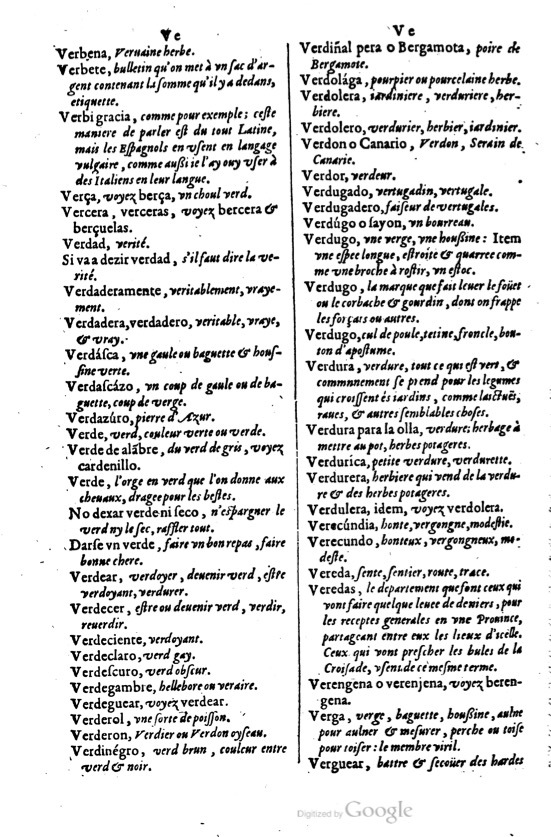 Ve
Verbena, Veruaine herbe.
Verbete, bulletin qu'on met à vn sac d'ar-
gent contenant la somme qu'il y a dedans,
etiquette.
Verbi gracia, comme pour exemple; ceste
maniere de parler est du tout Latine,
mais les Espagnols en vsent en langage
vulgaire, comme aussi ie l'ay ouy vser à
des Italiens en leur langue.
Verça, voyez berça, vn choul verd.
Vercera, verceras, voyez bercera &
berçuelas.
Verdad, verité.
Si va a dezir verdad, s'il faut dire la ve-
rité.
Verdaderamente, veritablement, vraye-
ment.
Verdadera, verdadero, veritable, vraye,
& vray.
Verdásca, vne gaule ou baguette & hous-
sine verte.
Verdascázo, vn coup de gaule ou de ba-
guette, coup de verge.
Verdazúro, pierre d'Azur.
Verde, verd, couleur verte ou verde.
Verde de alãbre, du verd de gris, voyez
cardenillo.
Verde, l'orge en verd que l'on donne aux
cheuaux, dragee pour les bestes.
No dexar verde ni seco, n'espargner le
verd ny le sec, raffler tout.
Darse vn verde, faire vn bon repas, faire
bonne chere.
Verdear, verdoyer, deuenir verd, estre
verdoyant, verdurer.
Verdecer, estre ou deuenir verd, verdir,
reuerdir.
Verdeciente, verdoyant.
Verdeclaro, verd gay.
Verdescuro, verd obscur.
Verdegambre, hellebore ou veraire.
Verdeguear, voyez verdear.
Verderol, vne sorte de poisson.
Verderon, Verdier ou Verdon oyseau.
Verdinégro, verd brun, couleur entre
verd & noir.
Ve
Verdiñal pera o Bergamota, poire de
Bergamote.
Verdolága, pourpier ou pourcelaine herbe.
Verdolera, iardiniere, verduriere, her-
biere.
Verdolero, verdurier, herbier, iardinier.
Verdon o Canario, Verdon, Serain de
Canarie.
Verdor, verdeur.
Verdugado, vertugadin, vertugale.
Verdugadero, faiseur de vertugales.
Verdúgo o sayon, vn bourreau.
Verdugo, vne verge, vne houssine: Item
vne espee longue, estroite & quarree com-
me vne broche à rostir, vn estoc.
Verdugo, la marque que fait leuer le foüet
ou le corbache & gourdin, dont on frappe
les forçats ou autres.
Verdugo, cul de poule, tetine, froncle, bou-
ton d'apostume.
Verdura, verdure, tout ce qui est vert, &
commnnement se prend pour les legumes
qui croissent és iardins, comme laictuës,
raues, & autres semblables choses.
Verdura para la olla, verdure; herbage à
mettre au pot, herbes potageres.
Verdurica, petite verdure, verdurette.
Verdurera, herbiere qui vend de la verdu-
re & des herbes potageres.
Verdulera, idem, voyez verdolera.
Verecúndia, honte, vergongne, modestie.
Verecundo, honteux, vergongneux, mo-
deste.
Vereda, sente, sentier, route, trace.
Veredas, le departement que font ceux qui
vont faire quelque leuee de deniers, pour
les receptes generales en vne Prouince,
partageant entre eux les lieux d'icelle.
Ceux qui vont prescher les bules de la
Croisade, vsent de ce mesme terme.
Verengena o verenjena, voyez beren-
gena.
Verga, verge, baguette, houssine, aulne
pour aulner & mesurer, perche ou toise
pour toiser: le membre viril.
Verguear, battre & secoüer des hardes
Digitized by Google